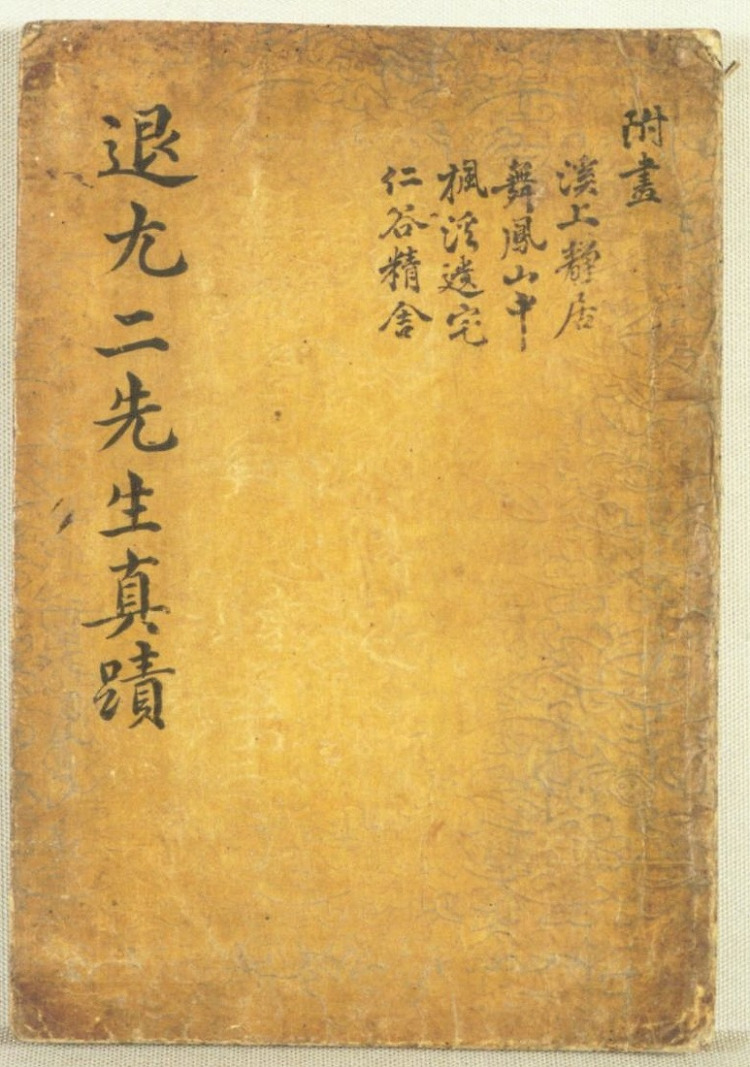 附畫
溪上靜居
舞鳳山中
楓溪遺宅
仁谷精舍
退尤二先生真蹟